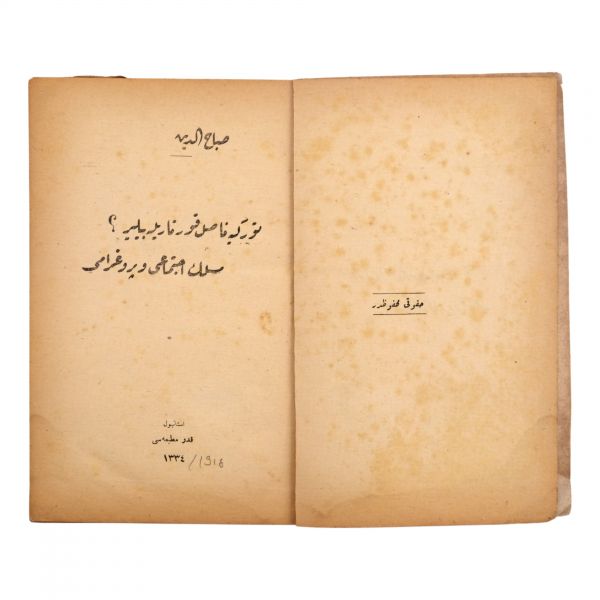 حقوقی محفوظدر
صباح الدین
تورکیه ناصل قورتاریله بیلیر ؟
مسلك اجتماعی و پروغرامی
استانبول
قدر مطبعه سی
١٣٣٤ /1918